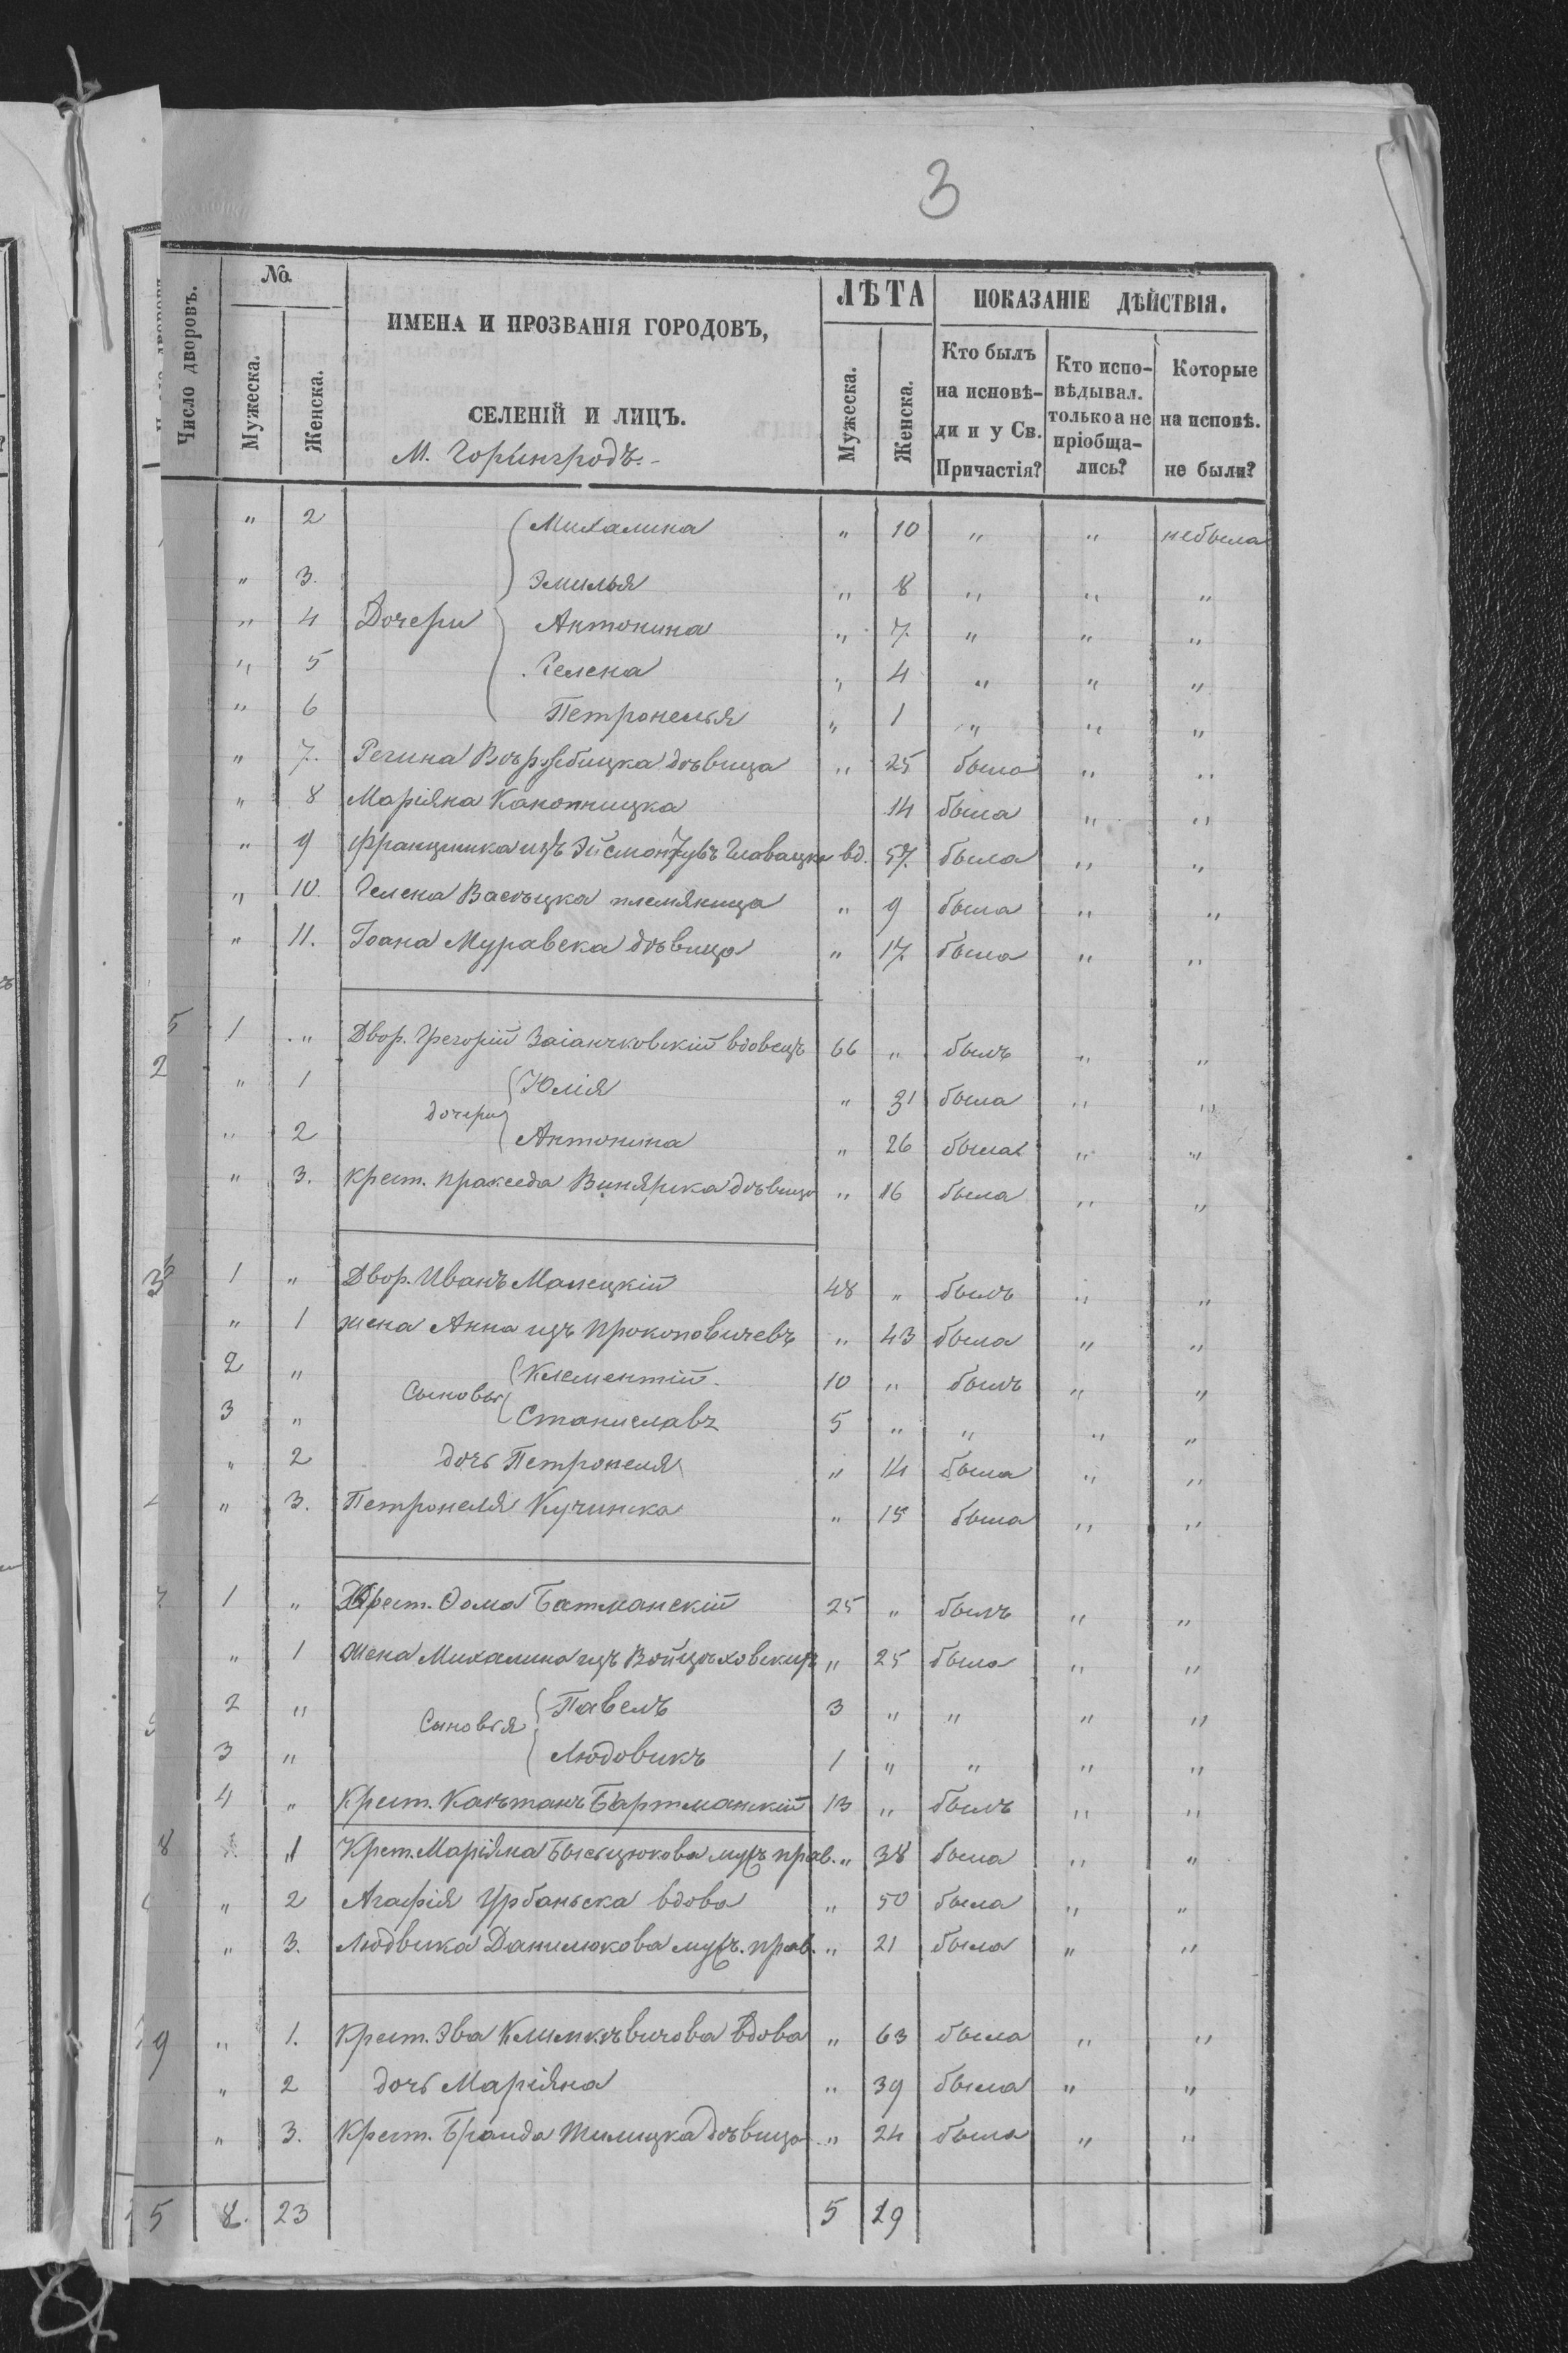 3
Число дворовъ.
№
Мужеска.
Женска.
ИМЕНА И ПРОЗВАНІЯ ГОРОДОВЪ,
СЕЛЕНІЙ И ЛИЦЪ.
М. Горингродъ.-
ЛѢТА
Мужеска.
Женска.
ПОКАЗАНІЕ ДѢЙСТВІЯ.
Кто былъ на исповѣ-ди и у Св. Причастія?
Кто испо-вѣдывал. только а не пріобща-лись?
Которые на исповѣ. не были?
" 2 Михалина " 10 " " небыла
" 3. Эмилья " 8 " " "
" 4 Дочери Антонина " 7. " " "
" 5 Гелена " 4 " " "
" 6 Петронелья " 1 " " "
" 7. Регина дѣвица " 25 была " "
" 8 Маріяна Канопницка 14 была " "
" 9 Францишка изъ Главацка вд. 57. была " "
" 10. Гелена племяница " 9 была " "
" 11. Іоана Муравска дѣвица " 17. была " "
5 1 " Двор. Грегорій Заіанчковскій вдовецъ 66 " былъ " "
2 " 1 Юлія " 31 была " "
дочери
" 2 Антонина " 26 была " "
" 3. крест. пракседа Винярска дѣвица " 16 была " "
1 " Двор. Иванъ Малецкій 48 " былъ " "
" 1 жена Анна изъ Прокоповичевъ " 43 была " "
2 " Клементій. 10 " былъ " "
Сыновья
3 " Станиславъ 5 " " " "
" 2 дочь Петронеля " 14 была " "
" 3. Петронеля Кучинска " 15 была " "
1 " Крест. Ѳома Батманскій 25 " былъ " "
" 1 Жена Михалина изъ Войцѣховскихъ " 25 была " "
2 " Павелъ 3 " " " "
Сыновья
3 " Людовикъ 1 " " " "
4 " Крест. Каѣтанъ Бартманскій 13 " былъ " "
8 " 1 Крест. Маріяна мужъ прав. " 38 была " "
" 2 Агафія Урбаньска вдова " 50 была " "
" 3. Людвика Данилюкова мужъ. прав. " 21 была " "
9 " 1. Крест. Эва Климкѣвичова вдова " 63 была " "
" 2 дочь Маріяна " 39 была " "
" 3. Крест. дѣвица " 24 была " "
5 8. 23 5 19